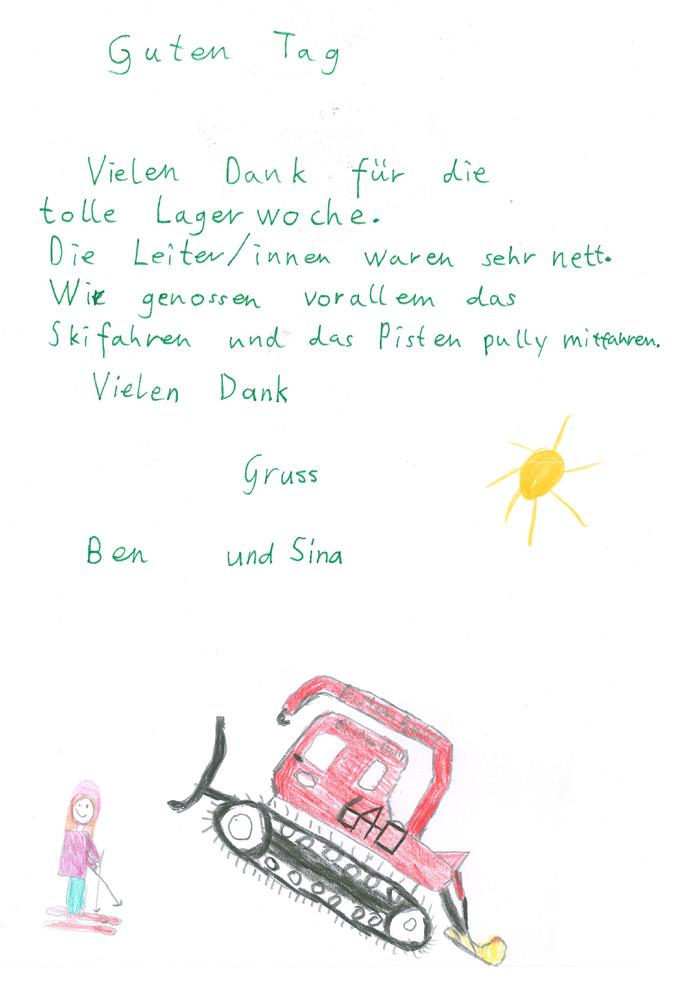 Guten Tag
Vielen Dank für die
tolle Lagerwoche.
Die Leiter/innen waren sehr nett.
Wir genossen vorallem das
Skifahren und das Pisten pully mitfahren.
Vielen Dank
Gruss
Ben und Sina